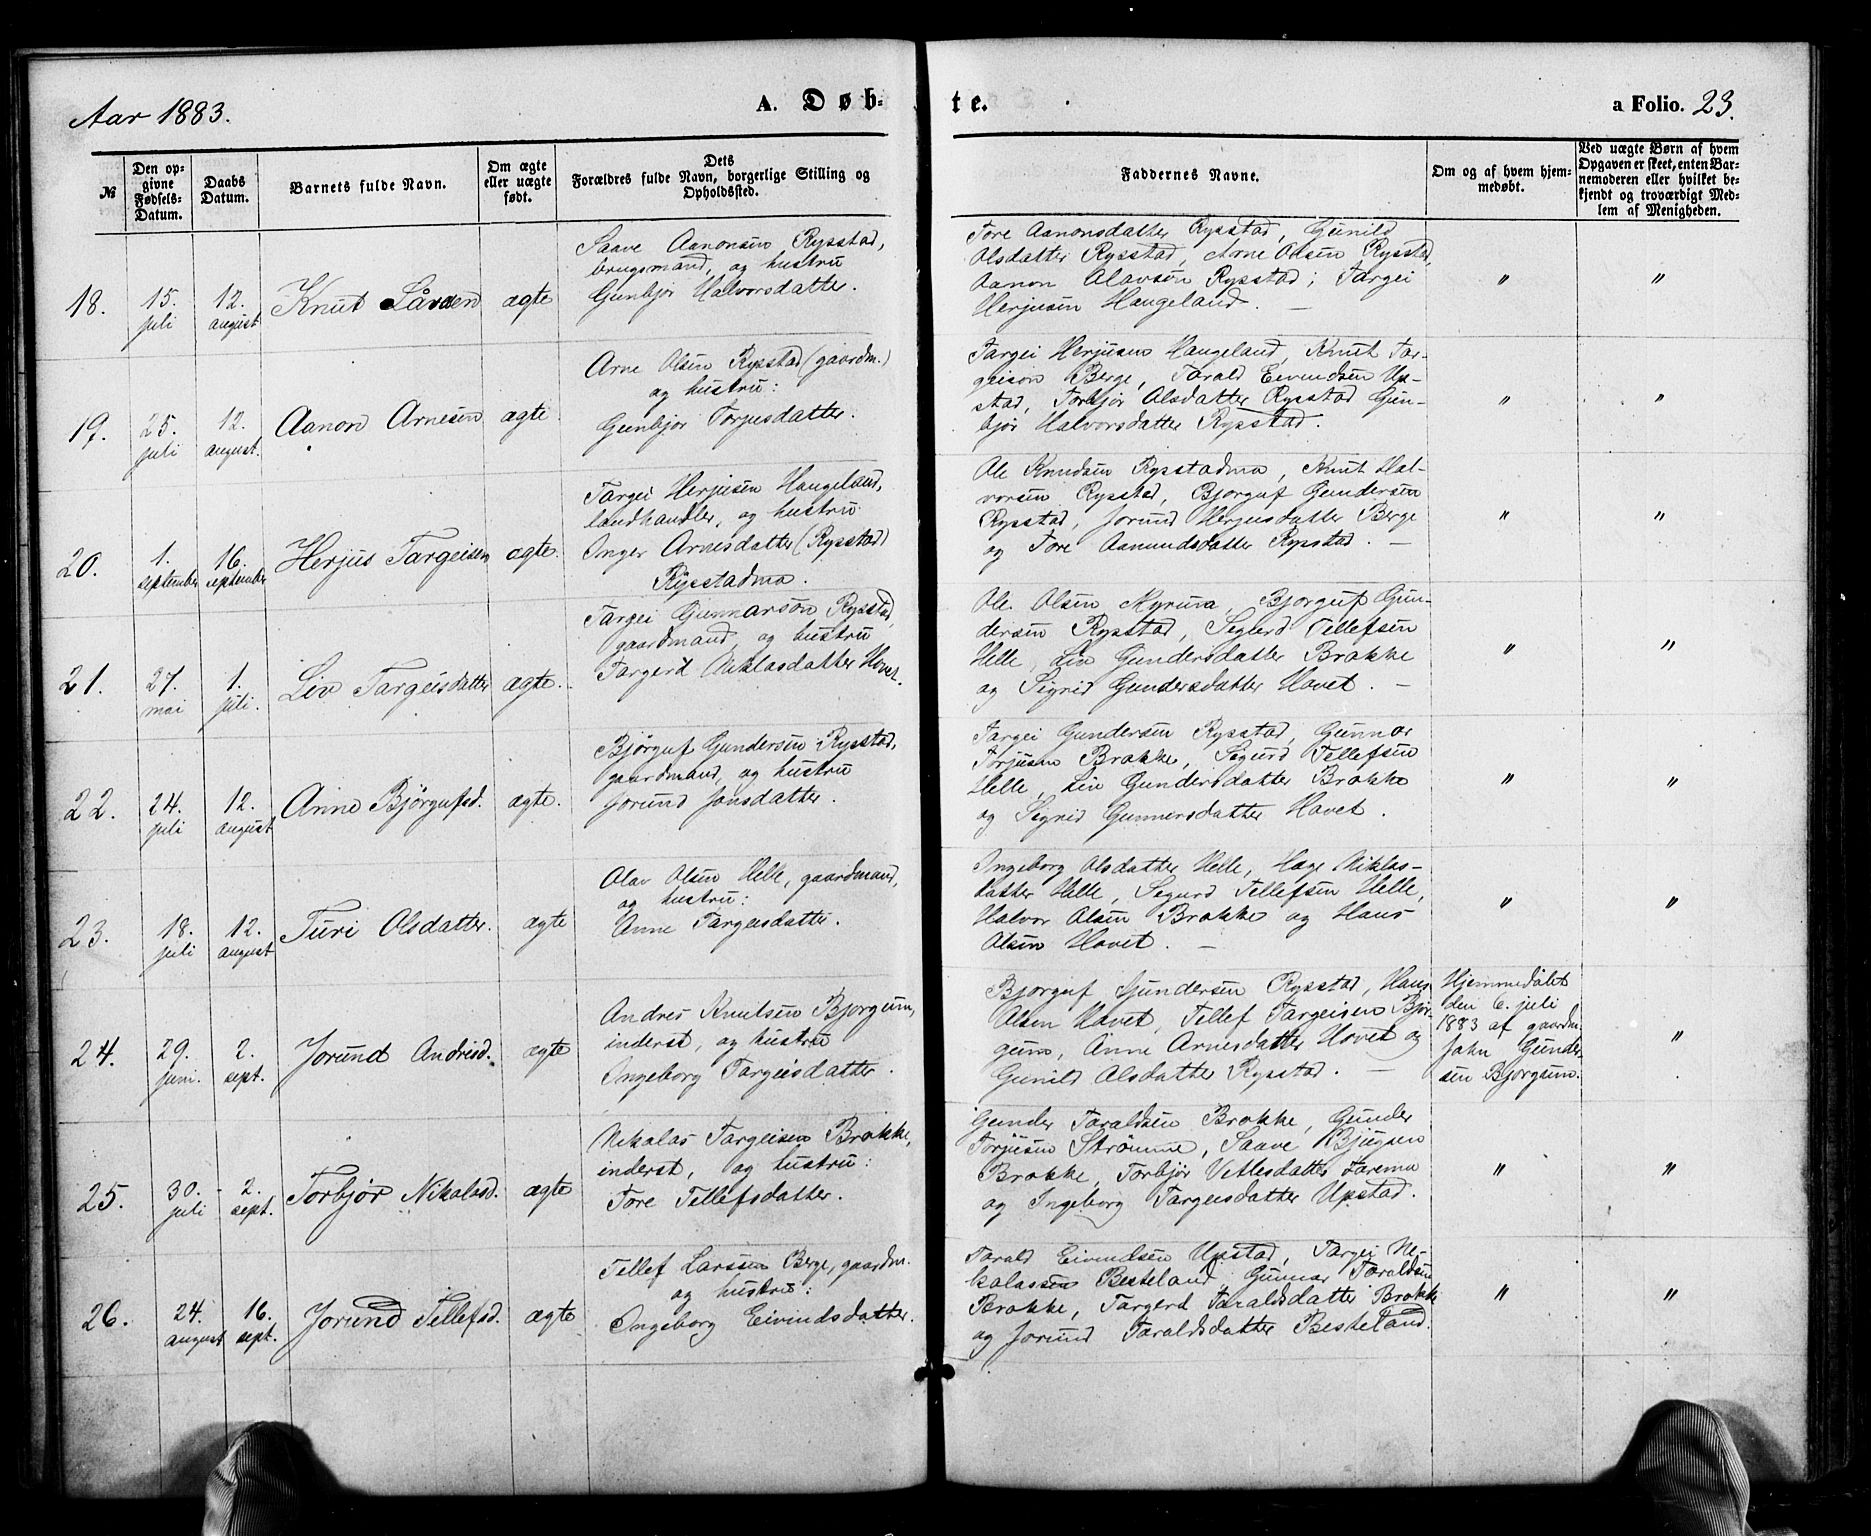 Aar 1883.
A. Døb-
te.
a Folio. 23.
№
Den op-
givne
Fødsels-
Datum.
Daabs
Datum.
Barnets fulde Navn.
Om ægte
eller uægte
født.
Dets
Forældres fulde Navn, borgerlige Stilling og
Opholdssted.
Faddernes Navne.
Om og af hvem hjem-
medøbt.
Ved uægte Børn af hvem
Opgaven er skeet, enten Bar-
nemoderen eller hvilket be-
kjendt og troværdigt Med-
lem af Menigheden.
18.
15.
juli
12.
august
Knut Såvesen
ægte
Saave Aanonsen Rysstad,
brugsmand, og hustru
Gunbjør Halvorsdatter.
Tore Aanonsdatter Rysstad, Gunild
Olsdatter Rysstad, Arne Olsen Rysstad
Aanon Olavson Rysstad; Targei
Herjusen Haugeland. —
"
"
19.
25.
juli
12.
august.
Aanon Arnesen
ægte
Arne Olsen Rysstad (gaardm.)
og hustru:
Gunbjør Torjusdatter.
Targei Herjusen Haugeland, Knut Tar-
geison Berge, Tarald Eivindsen Up-
stad, Torbjør Olsdatter Rysstad Gun-
bjør Halvorsdatter Rysstad.
"
"
20.
1.
september
16.
september
Herjus Targeisen
ægte.
Targei Herjusen Haugeland,
landhandler, og hustru
Inger Arnesdatter (Rysstad)
Rysstadmo.
Ole Knudsen Rysstadmo, Knut Hal-
vorsen Rysstad, Bjorguf Gundersen
Rysstad, Jorund Herjusdatter Berge
og Tore Aamundsdatter Rysstad. —
"
"
21.
27.
mai
1.
juli.
Liv Targeisdatter
ægte.
Targei Gunnarson Rysstad,
gaardmand, og hustru
Targerd Niklasdatter Hovet.
Ole Olsen Myrum, Bjorguf Gun-
dersen Rysstad, Sigurd Tellefsen
Helle, Liv Gundersdatter Brokke
og Sigrid Gundersdatter Hovet. —
"
"
22.
24.
juli
12.
august
Anne Bjørgufsd.
ægte.
Bjørguf Gundersen Rysstad,
gaardmand, og hustru
Jorund Jonsdatter.
Targei Gundersen Rysstad, Gunnar
Torjusen Brokke, Sigurd Tellefsen
Helle, Liv Gundersdatter Brokke
og Sigrid Gunnersdatter Hovet.
"
"
23.
18.
juli
12.
august
Turi Olsdatter.
ægte
Olav Olsen Helle, gaardmand,
og hustru:
Anne Targeisdatter.
Ingeborg Olsdatter Helle, Hæge Niklas-
datter Helle, Sigurd Tellefsen Helle,
Halvor Olsen Brokke og Hans
Olsen Hovet. —
"
"
24.
29.
juni.
2.
sept.
Jorund Andresd.
ægte
Andres Knutsen Bjorgum,
inderst, og hustru
Ingeborg Targeisdatter.
Bjorguf Gundersen Rysstad, Hans
Olsen Hovet, Tellef Targeisen Bjor-
gum, Anne Arnesdatter Hovet og
Gunild Olsdatter Rysstad. —
Hjemmedøbt
den 6. juli
1883 af gaardm.
John Gunder-
sen Bjorgum.
"
25.
30.
juli
2.
sept.
Torbjør Nikolasd.
ægte
Nikolas Targeisen Brokke,
inderst, og hustru:
Tore Tellefsdatter.
Gunder Taraldsen Brokke, Gunder
Torjusen Strømme, Saave Bjugsen
Brokke, Torbjør Vetlesdatter Farema
og Ingeborg Targeisdatter Upstad.
"
"
26.
24.
august
16.
sept.
Jorund Tellefsd.
ægte
Tellef Larssen Berge, gaardm.
og hustru:
Ingeborg Eivindsdatter.
Tarald Eivindsen Upstad, Targei Ni-
kolassen Besteland, Gunnar Taraldsen
Brokke, Targerd Taraldsdatter Brokk
og Jorund Taraldsdatter Besteland.
"
"